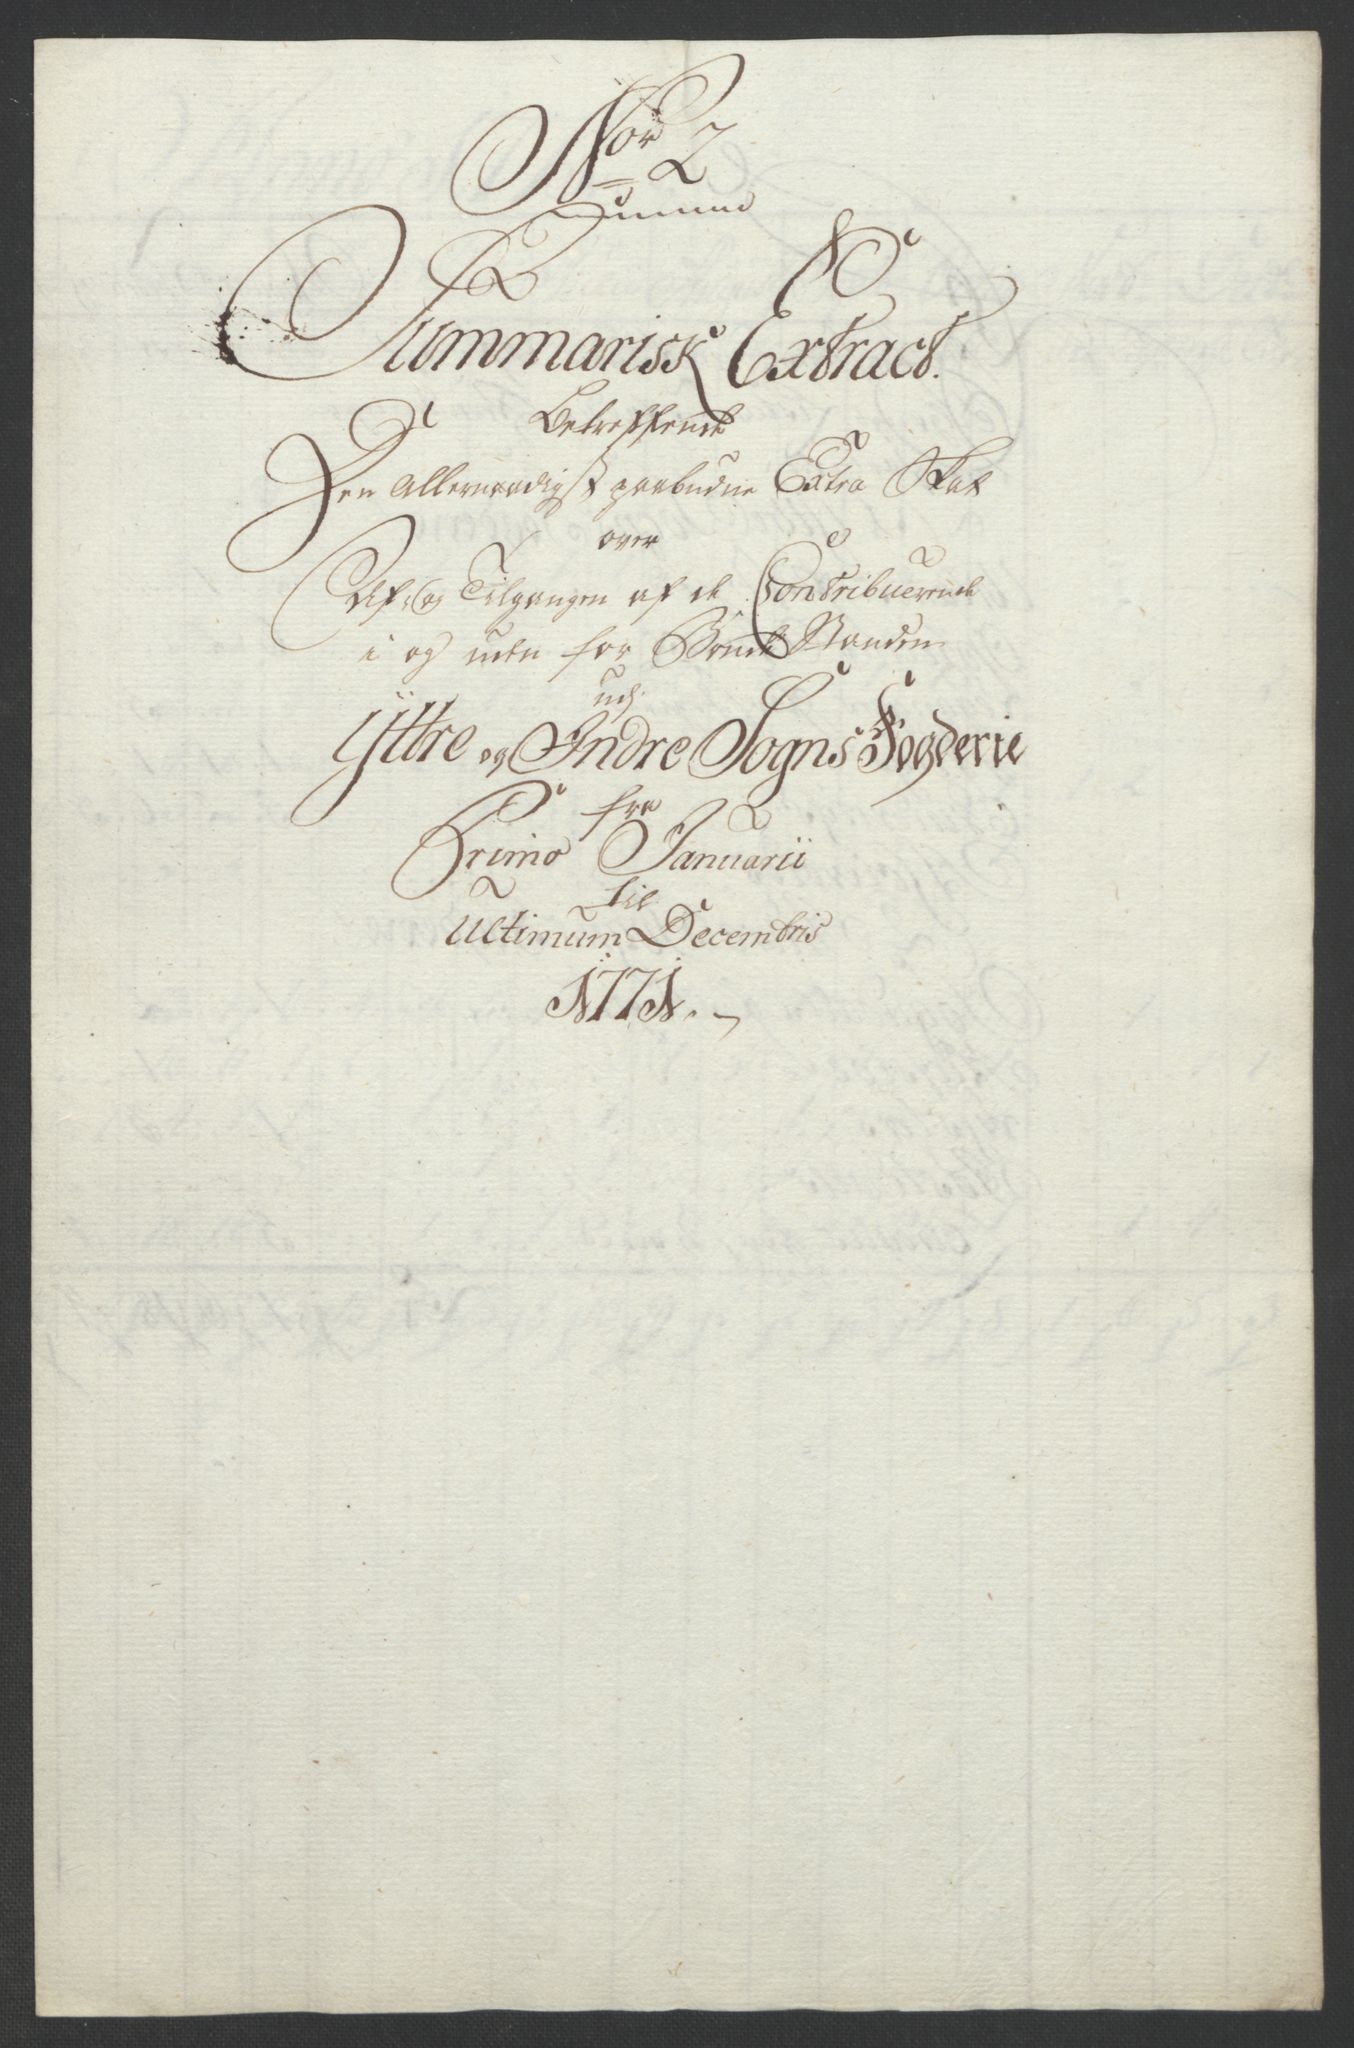 No 2
Summarisk Extract.
Betreffende
Den allernaadigst paabudne Extra Skat
over
Af- og Tilgangen af de Contribuerende
i og uden for Bonde Standen
udj
Yttre og Indre Sogns Fogderie
fra
Primo Januarii
til
Ultimum Decembris
1771.